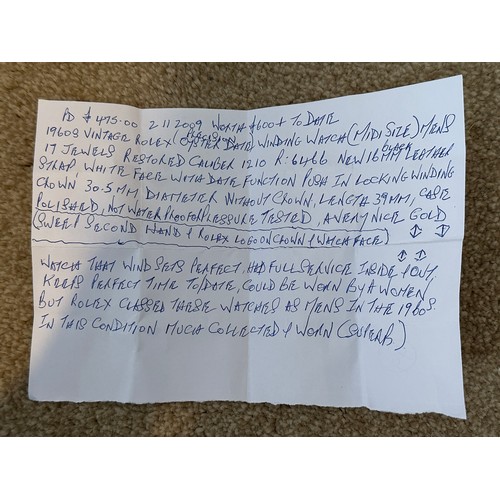 PD $475.00 2 11 2009 WORTH $600+ TO DATE
PRECISION
1960S VINTAGE ROLEX (OYSTER DATE) WINDING WATCH (MIDI SIZE) MENS
17 JEWELS RESTORED CALIBER 1210 R: 6466 NEW 16MM BLACK LEATHER
STRAP, WHITE FACE WITH DATE FUNCTION PUSH IN LOCKING WINDING
CROWN 30.5MM DIAMETER WITHOUT CROWN, LENGTH 39MM, CASE
POLISHED, NOT WATER PROOF OR PRESSURE TESTED, A VERY NICE GOLD
(SWEEP SECOND HAND & ROLEX LOGO ON CROWN & WATCH FACE)
WATCH THAT WIND SETS PERFECT, HAD FULL SERVICE INSIDE & OUT,
KEEPS PERFECT TIME TO/DATE, COULD BE WORN BY A WOMEN,
BUT ROLEX CLASSED THESE WATCHES AS MENS IN THE 1960S.
IN THIS CONDITION MUCH COLLECTED & WORN (SUPERB)